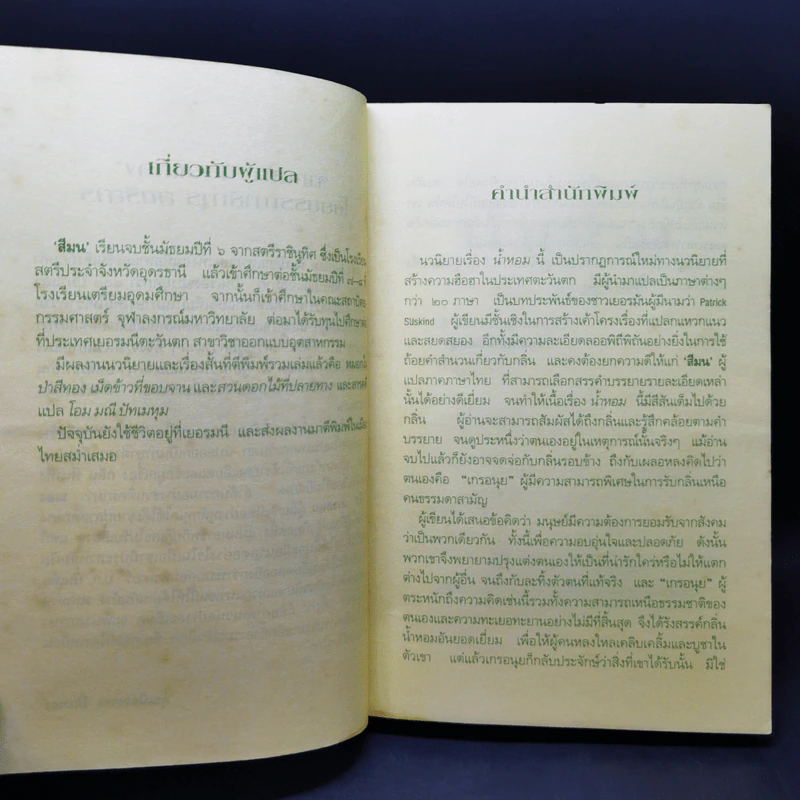 เกี่ยวกับผู้แปล
'สีมน' เรียนจบชั้นมัธยมปีที่ ๖ จากสตรีราชินูทิศ ซึ่งเป็นโรงเรียน
สตรีประจำจังหวัดอุดรธานี แล้วเข้าศึกษาต่อชั้นมัธยมปีที่ ๗-๘ ที่
โรงเรียนเตรียมอุดมศึกษา จากนั้นก็เข้าศึกษาในคณะสถาปัตย
กรรมศาสตร์ จุฬาลงกรณ์มหาวิทยาลัย ต่อมาได้รับทุนไปศึกษาต่อ
ที่ประเทศเยอรมนีตะวันตก สาขาวิชาออกแบบอุตสาหกรรม
มีผลงานนวนิยายและเรื่องสั้นที่ตีพิมพ์รวมเล่มแล้วคือ
ป่าสีทอง เม็ดข้าวที่ขอบจาน และสวนดอกไม้ที่ปลายทาง
แปล โอม มณี ปัทเมหุม
ปัจจุบันยังใช้ชีวิตอยู่ที่เยอรมนี และส่งผลงานมาตีพิมพ์ในเมือง
ไทยสม่ำเสมอ
คำนำสำนักพิมพ์
นวนิยายเรื่อง น้ำหอม นี้ เป็นปรากฏการณ์ใหม่ทางนวนิยายที่
สร้างความฮือฮาในประเทศตะวันตก มีผู้นำมาแปลเป็นภาษาต่างๆ
กว่า ๒๐ ภาษา เป็นบทประพันธ์ของชาวเยอรมันผู้มีนามว่า Patrick
Süskind ผู้เขียนมีชั้นเชิงในการสร้างเค้าโครงเรื่องที่แปลกแหวกแนว
และสยดสยอง อีกทั้งมีความละเอียดลออพิถีพิถันอย่างยิ่งในการใช้
ถ้อยคำสำนวนเกี่ยวกับกลิ่น และคงต้องยกความดีให้แก่ 'สีมน' ผู้
แปลภาคภาษาไทย ที่สามารถเลือกสรรคำบรรยายรายละเอียดเหล่า
นั้นได้อย่างดีเยี่ยม จนทำให้เนื้อเรื่อง น้ำหอม นี้มีสีสันเต็มไปด้วย
กลิ่น ผู้อ่านจะสามารถสัมผัสได้ถึงกลิ่นและรู้สึกคล้อยตามคำ
บรรยาย จนดูประหนึ่งว่าตนเองอยู่ในเหตุการณ์นั้นจริงๆ แม้อ่าน
จบไปแล้วก็ยังอาจจดจ่อกับกลิ่นรอบข้าง ถึงกับเผลอหลงคิดไปว่า
ตนเองคือ "เกรอนุย" ผู้มีความสามารถพิเศษในการรับกลิ่นเหนือ
คนธรรมดาสามัญ
ผู้เขียนได้เสนอข้อคิดว่า มนุษย์มีความต้องการยอมรับจากสังคม
ว่าเป็นพวกเดียวกัน ทั้งนี้เพื่อความอบอุ่นใจและปลอดภัย ดังนั้น
พวกเขาจึงพยายามปรุงแต่งตนเองให้เป็นที่น่ารักใคร่หรือไม่ให้แตก
ต่างไปจากผู้อื่น จนถึงกับละทิ้งตัวตนที่แท้จริง และ "เกรอนุย" ผู้
ตระหนักถึงความคิดเช่นนี้รวมทั้งความสามารถเหนือธรรมชาติของ
ตนเองและความทะเยอทะยานอย่างไม่มีที่สิ้นสุด จึงได้รังสรรค์กลิ่น
น้ำหอมอันยอดเยี่ยม เพื่อให้ผู้คนหลงใหลเคลิบเคลิ้มและบูชาใน
ตัวเขา แต่แล้วเกรอนุยก็กลับประจักษ์ว่าสิ่งที่เขาได้รับนั้น มิใช่